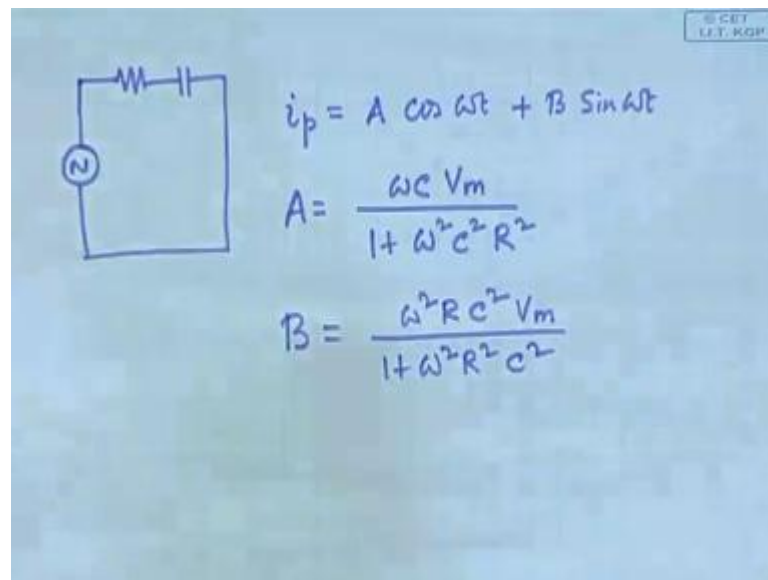 © CET
I.I.T. KGP
i_p = A cos ωt + B Sin ωt
A = ωC Vm / 1 + ω²C²R²
B = ω²RC²Vm / 1 + ω²R²C²